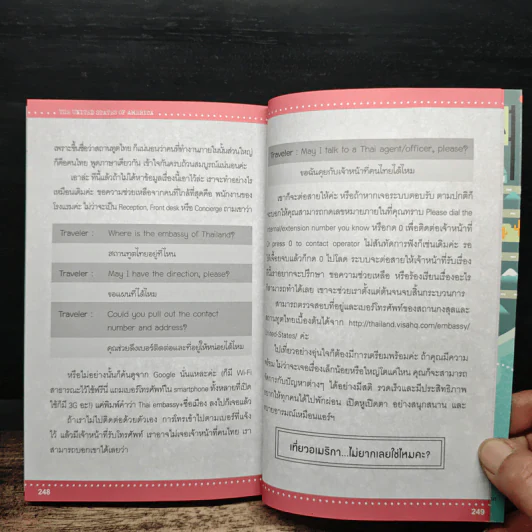 THE UNITED STATES OF AMERICA
เพราะชื่อว่าสถานทูตไทย ก็แน่นอนว่าคนที่ทำงานภายในนั้นส่วนใหญ่
ก็คือคนไทย พูดภาษาเดียวกัน เข้าใจกันครบถ้วนสมบูรณ์แน่นอนค่ะ
เอาล่ะ ทีนี้แล้วถ้าไม่ได้หาข้อมูลเรื่องนี้เอาไว้ล่ะ เราจะทำอย่างไร
เหมือนเดิมค่ะ ขอความช่วยเหลือจากคนที่ใกล้ที่สุดคือ พนักงานของ
โรงแรมค่ะ ไม่ว่าจะเป็น Reception, Front desk หรือ Concierge ถามเขาว่า
Traveler : Where is the embassy of Thailand?
สถานทูตไทยอยู่ที่ไหน
Traveler : May I have the direction, please?
ขอแผนที่ได้ไหม
Traveler : Could you pull out the contact
number and address?
คุณช่วยดึงเบอร์ติดต่อและที่อยู่ให้หน่อยได้ไหม
หรือไม่อย่างนั้นก็ค้นดูจาก Google นั่นแหละค่ะ ก็มี Wi-Fi
สาธารณะไว้ใช้ฟรีนี่ แถมเบอร์โทรศัพท์ใน smartphone ทั้งหลายที่เปิด
ใช้ก็มี 3G อะ! แค่พิมพ์คำว่า Thai embassy+ชื่อเมือง ลงไปก็เจอแล้ว
ถ้าเราไม่ไปติดต่อด้วยตัวเอง การโทรเข้าไปตามเบอร์ที่แจ้ง
ไว้ แล้วมีเจ้าหน้าที่รับโทรศัพท์ เราอาจไม่เจอเจ้าหน้าที่คนไทย เรา
สามารถบอกเขาได้เลยว่า
248
Traveler : May I talk to a Thai agent/officer, please?
ขอฉันคุยกับเจ้าหน้าที่คนไทยได้ไหม
เขาก็จะต่อสายให้ค่ะ หรือถ้าหากเจอระบบตอบรับ ตามปกติก็
จะบอกให้คุณสามารถกดเลขหมายภายในที่คุณทราบ Please dial the
internal/extension number you know หรือกด 0 เพื่อติดต่อเจ้าหน้าที่
press 0 to contact operator ไม่สันทัดการฟังก็เช่นเดิมค่ะ รอ
แล้วก็กด 0 ไปโลด ระบบจะต่อสายให้เจ้าหน้าที่รับเรื่อง
ปรึกษา ขอความช่วยเหลือ หรือร้องเรียนเรื่องอะไร
สามารถทำได้เลย เขาจะช่วยเราตั้งแต่ต้นจนจบสิ้นกระบวนการ
สามารถตรวจสอบที่อยู่และเบอร์โทรศัพท์ของสถานกงสุลและ
สถานทูตไทยเบื้องต้นได้จาก http://thailand.visahq.com/embassy/
United-States/ ค่ะ
ไปเที่ยวอย่างอุ่นใจก็ต้องมีการเตรียมพร้อมค่ะ ถ้าคุณมีความ
พร้อม ไม่ว่าจะเจอเรื่องเล็กน้อยหรือใหญ่โตแค่ไหน คุณก็จะสามารถ
จัดการกับปัญหาต่างๆ ได้อย่างมีสติ รวดเร็วและมีประสิทธิภาพ
ให้ทุกคนได้ไปพักผ่อน เปิดหูเปิดตา อย่างสนุกสนาน และ
อารมณ์เหมือนแอร์ฯ
เที่ยวอเมริกา...ไม่ยากเลยใช่ไหมคะ?
249